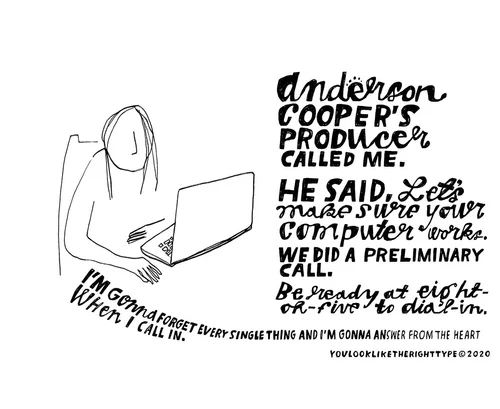 anderson
COOPER'S
PRODUCER
CALLED ME.
HE SAID, Let's
make sure your
computer works.
WE DID A PRELIMINARY
CALL.
Be ready at eight-
oh-five to dial-in.
I'M GONNA FORGET EVERY SINGLE THING AND I'M GONNA ANSWER FROM THE HEART
WHEN I CALL IN.
YOULOOKLIKETHERIGHTTYPE©2020